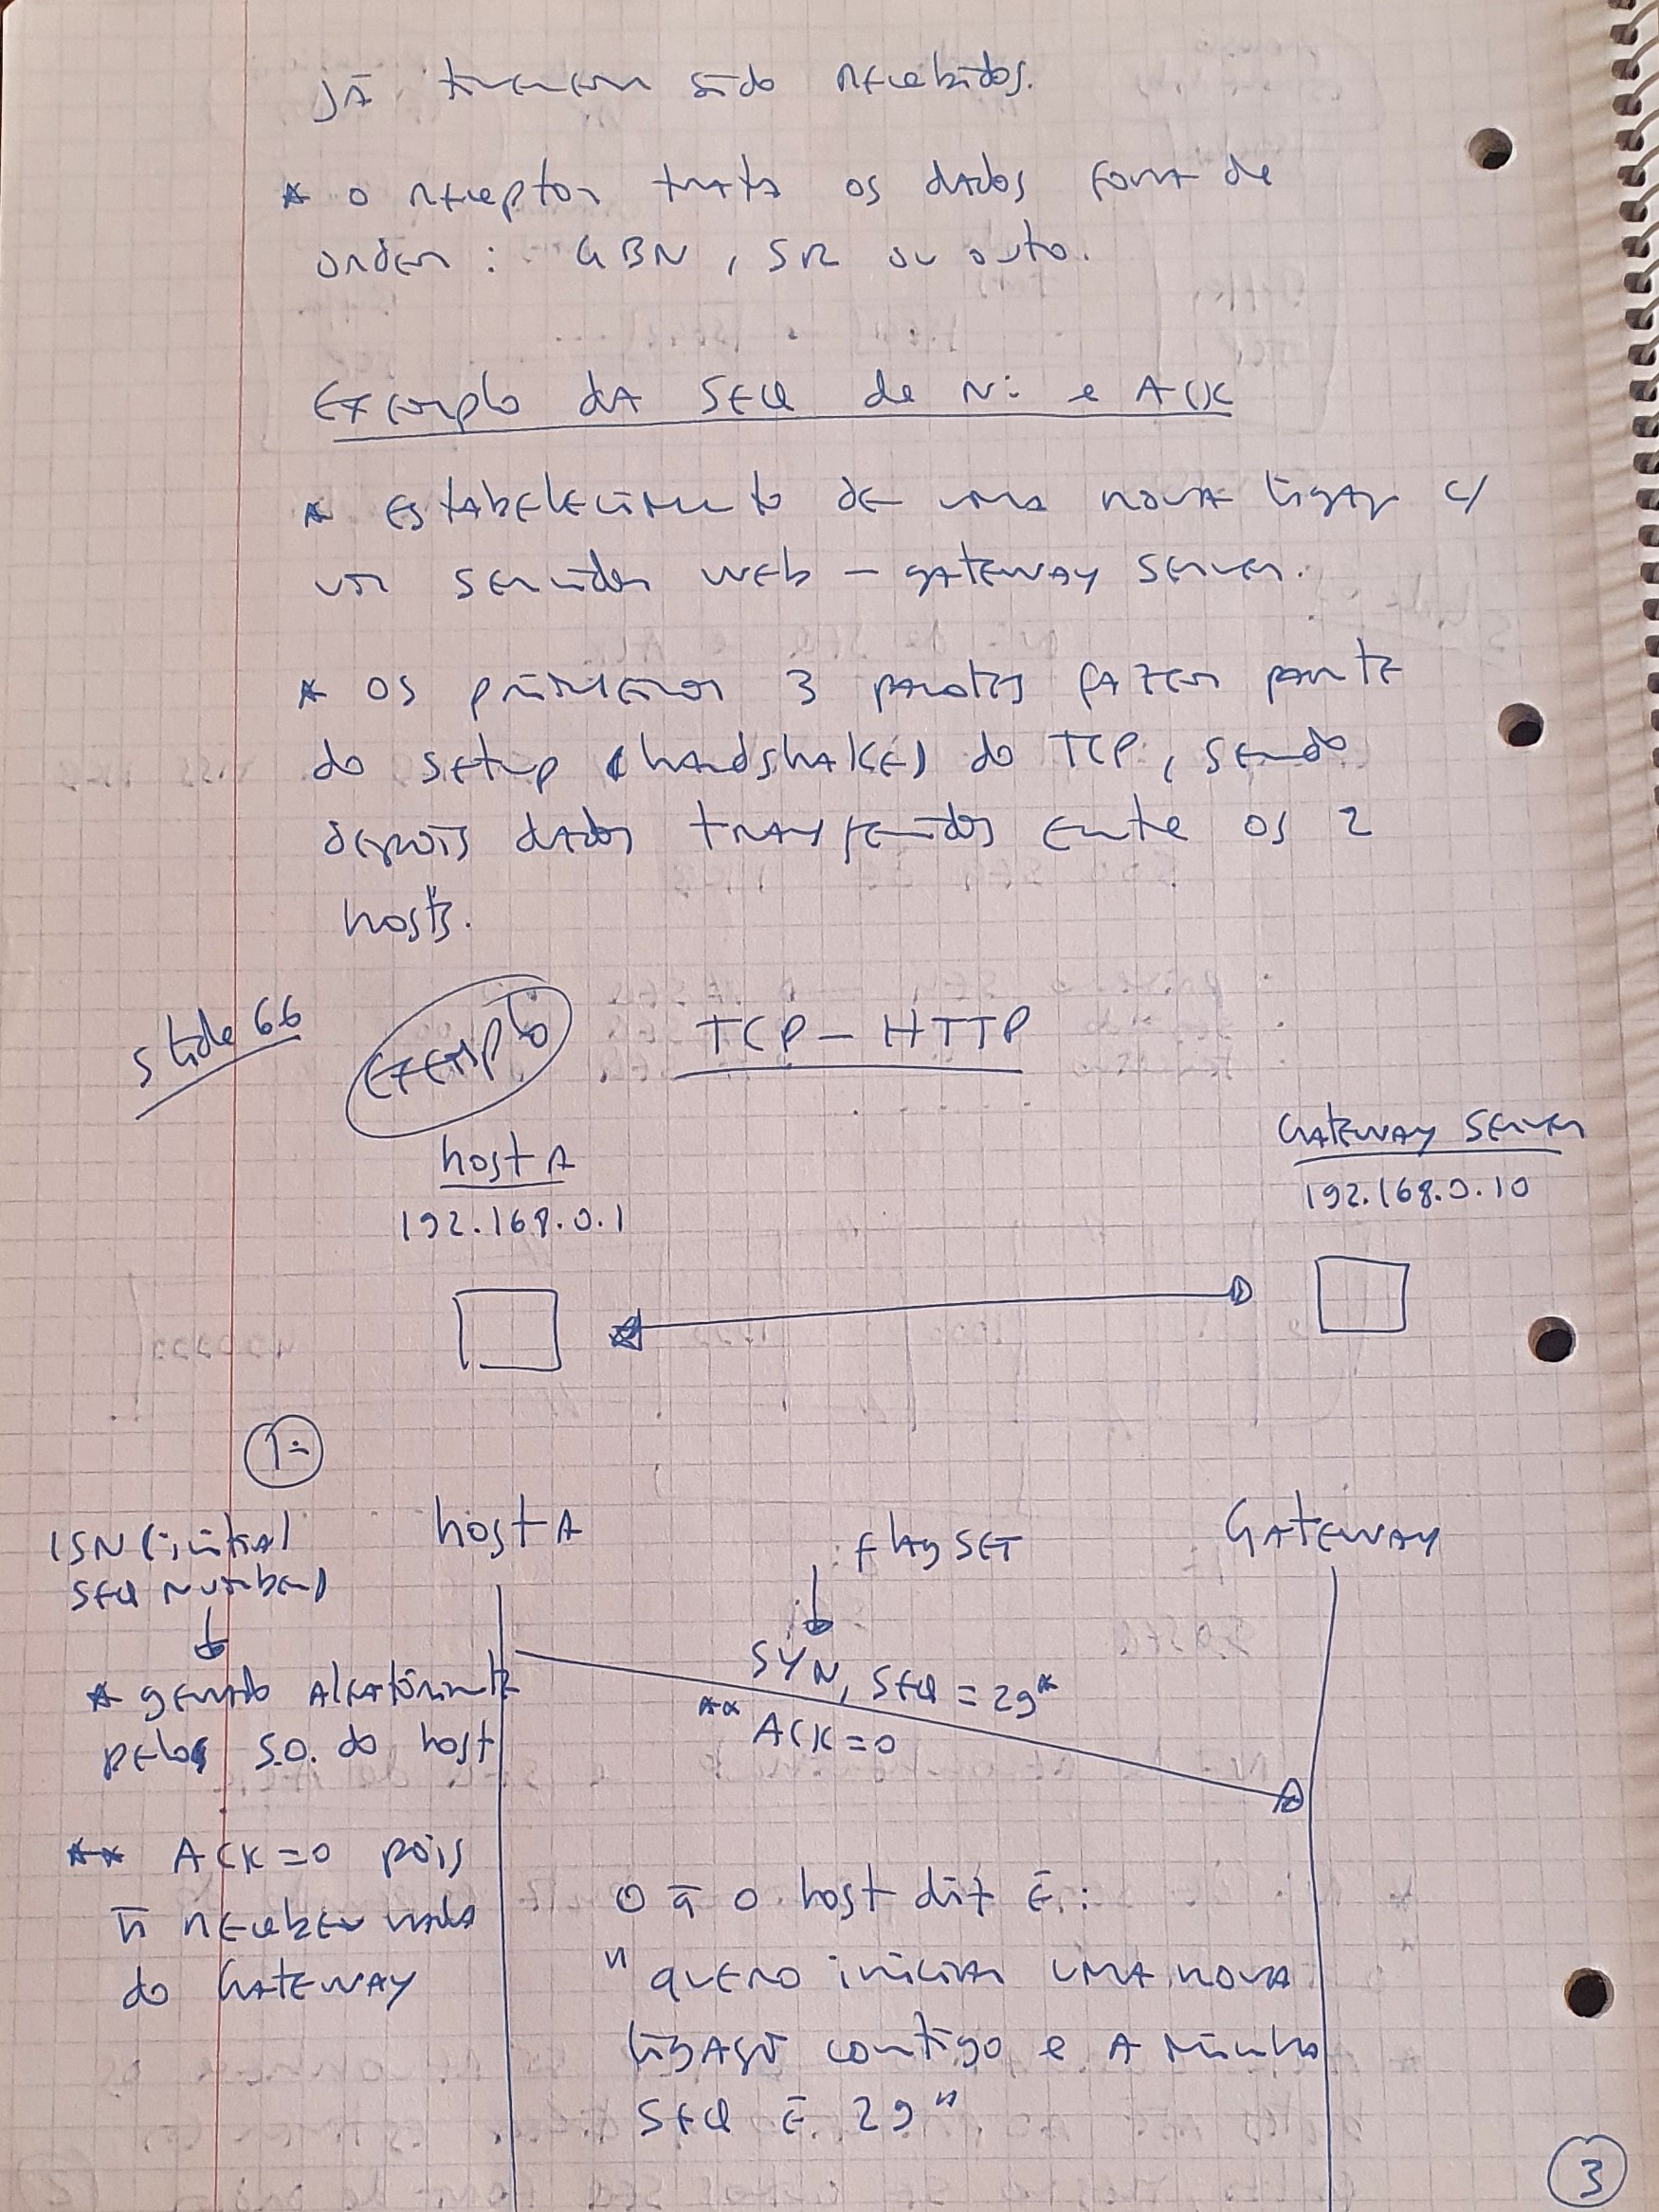 já tiverem sido recebidos.
* o receptor trata os dados fora de
ordem : GBN, SR ou outo.
Exemplo da SEQ de Nº e ACK
* Estabelecimento de uma nova ligaç c/
um servidor web - gateway server.
* Os primeiros 3 pacotes fazem parte
do setup (handshake) do TCP, sendo
depois dados transferidos entre os 2
hosts.
slide 66
Exemplo
TCP - HTTP
host A
192.168.0.1
Gateway Server
192.168.0.10
1º
ISN (initial
SEQ number)
* gerado aleatóriamente
pelo S.O. do host
** ACK=0 pois
ñ recebeu nada
do Gateway
host A
flag SET
Gateway
SYN, SEQ = 29*
** ACK=0
O q̄ o host diz é:
"quero iniciar uma nova
ligação contigo e a minha
SEQ é 29"
3